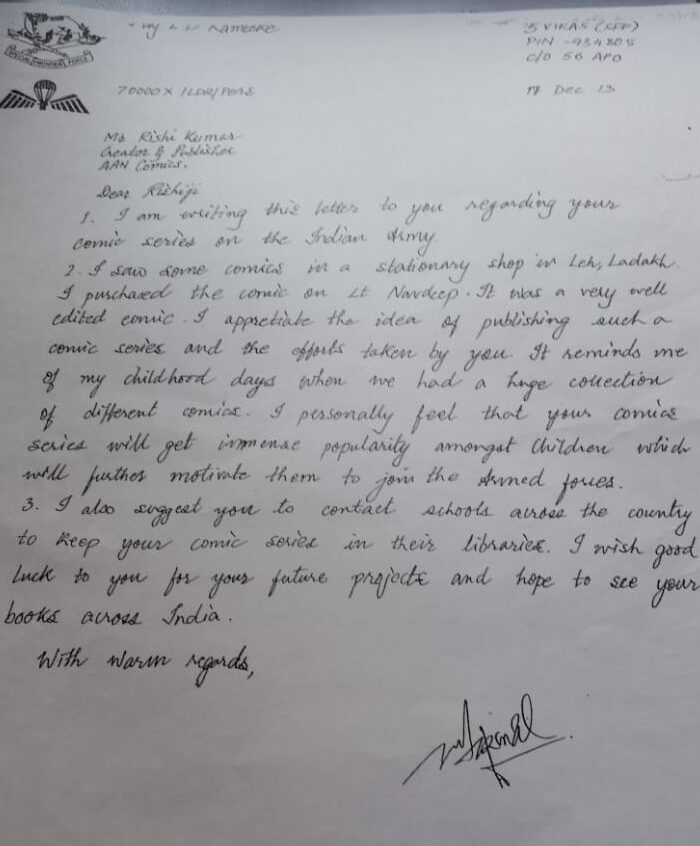 5 VIKAS (SFF)
PIN -934805
C/O 56 APO
SPECIAL FRONTIER FORCE
17 Dec 13
Mr Rishi Kumar
Creator & Publisher
AAN Comics.
Dear Rishiji
1. I am writing this letter to you regarding your
comic series on the Indian Army.
2. I saw some comics in a stationary shop in Leh, Ladakh.
I purchased the comic on Lt Navdeep. It was a very well
edited comic. I appretiate the idea of publishing such a
comic series and the efforts taken by you. It reminds me
of my childhood days when we had a huge collection
of different comics. I personally feel that your comics
series will get immense popularity amongst children which
will further motivate them to join the Armed forces.
3. I also suggest you to contact schools across the country
to keep your comic series in their libraries. I wish good
luck to you for your future projects and hope to see your
books across India.
With warm regards,